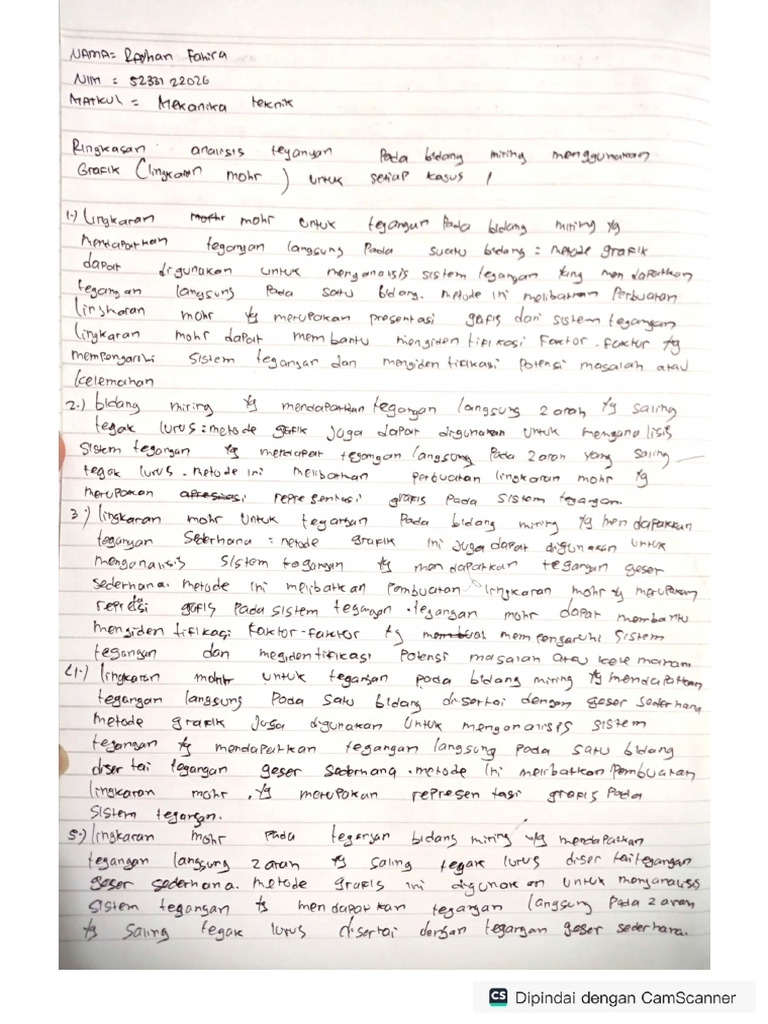 NAMA = Rayhan Fahira
NIM = 5233122026
MATKUL = Mekanika teknik
Ringkasan analisis tegangan Pada bidang miring menggunakan
GRAFIK (lingkaran mohr) untuk setiap kasus !
1.) Lingkaran mohr untuk tegangan Pada bidang miring yg
mendapatkan tegangan langsung Pada suatu bidang : metode grafik
dapat digunakan untuk menganalisis sistem tegangan yang mendapatkan
tegangan langsung Pada satu bidang. metode ini melibatkan Perbuatan
lingkaran mohr yg merupakan presentasi grafis dari sistem tegangan
lingkaran mohr dapat membantu mengidentifikasi Faktor-faktor yg
mempengaruhi sistem tegangan dan mengidentifikasi Potensi masalah atau
kelemahan
2.) bidang miring yg mendapatkan tegangan langsung 2 arah yg saling
tegak lurus : metode grafik juga dapat digunakan untuk menganalisis
Sistem tegangan yg mendapat tegangan langsung Pada 2 arah yang saling
tegak lurus. metode ini melibatkan perbuatan lingkaran mohr yg
merupakan representasi grafis pada sistem tegangan.
3.) lingkaran mohr untuk tegangan Pada bidang miring yg mendapatkan
tegangan Sederhana : metode grafik ini juga dapat digunakan untuk
menganalisis sistem tegangan yg mendapatkan tegangan geser
sederhana. metode ini melibatkan Pembuatan lingkaran mohr yg merupakan
grafis pada sistem tegangan . tegangan mohr dapat membantu
mengidentifikasi faktor-faktor yg mempengaruhi sistem
tegangan dan megidentifikasi Potensi masalah atau
4.) lingkaran mohr untuk tegangan pada bidang miring yg mendapatkan
tegangan langsung Pada satu bidang disertai dengan geser sederhana
metode grafik juga digunakan untuk menganalisis sistem
tegangan yg mendapatkan tegangan langsung pada satu bidang
disertai tegangan geser sederhana . metode ini melibatkan Pembuatan
lingkaran mohr , yg merupakan representasi grafis Pada
Sistem tegangan.
5.) lingkaran mohr pada tegangan bidang miring yg mendapatkan
tegangan langsung 2 arah yg saling tegak lurus disertai tegangan
geser sederhana. metode grafis ini digunakan untuk menganalisis
sistem tegangan yg mendapatkan tegangan langsung Pada 2 arah
yg saling tegak lurus disertai dengan tegangan geser sederhana.
CS Dipindai dengan CamScanner